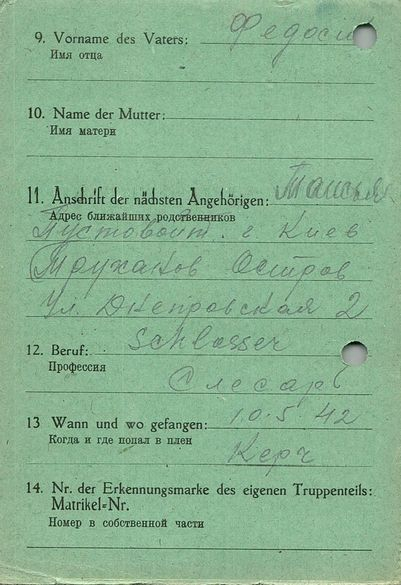 9. Vorname des Vaters:
Имя отца
10. Name der Mutter:
Имя матери
11. Anschrift der nächsten Angehörigen: Таисья
Адрес ближайших родственников
Пустовойт. г Киев
Труханов Остров
Ул. Днепровская 2
12. Beruf: Schlosser
Профессия
Слесарь
13 Wann und wo gefangen: 10.5 42
Когда и где попал в плен
Керч
14. Nr. der Erkennungsmarke des eigenen Truppenteils:
Matrikel=Nr.
Номер в собственной части